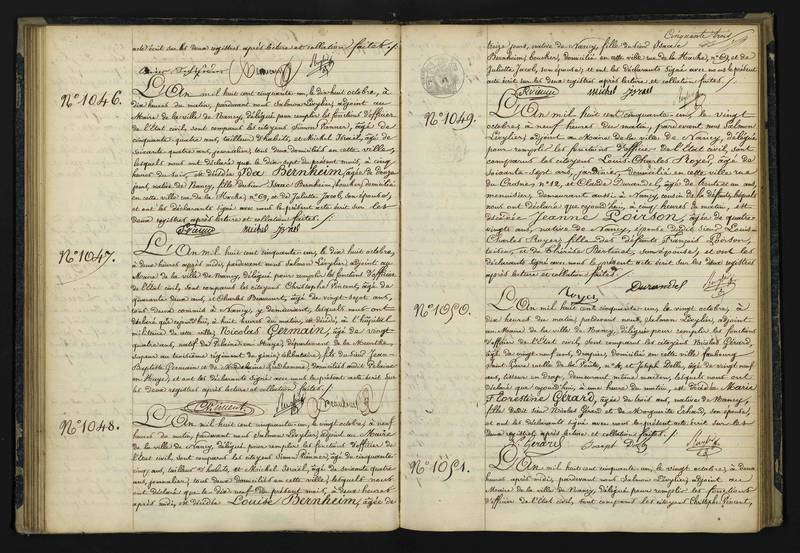 acte écrit sur les deux registres après lecture et collation faites ./.
N° 1046.
L'An mil huit cent cinquante-un, le dix huit octobre, à
dix heures du matin, pardevant nous Salmon Lévylier, adjoint au
Maire de la ville de Nancy, délégué pour remplir les fonctions d'officier
de l'Etat civil, sont comparus les citoyens Simon âgé de
cinquante quatre ans, tailleur d'habits, et Michel Israël, âgé de
soixante quatre ans, journalier, tous deux domiciliés en cette ville,
lesquels nous ont déclaré que le dix sept du présent mois, à cinq
heures du soir, est décédée Ida Bernheim, âgée de douze
jours, native de Nancy, fille du sieur Isaac Bernheim, boucher, domicilié
en cette ville rue de la Hache, n° 69, et de Juliette Jacob, son épouse;
et ont les déclarants signé avec nous le présent acte écrit sur les
deux registres, après lecture et collation faites ./.
Michel Israel
N° 1047.
L'An mil huit cent cinquante-un, le dix huit octobre,
à deux heures après midi, pardevant nous Salmon Lévylier, adjoint au
Maire de la ville de Nancy, délégué pour remplir les fonctions d'officier
de l'Etat civil, sont comparus les citoyens Christophe Vincent, âgé de
quarante deux ans, et Charles Beaumont, âgé de vingt-sept ans,
tous deux commis à Nancy, y demeurant, lesquels nous ont
déclaré que cejourd'hui, à huit heures du matin, est décédé, à l'hôpital
militaire de cette ville, Nicolas Germain, âgé de vingt-
quatre ans, natif de en Haye, département de la Meurthe,
sapeur au troisième régiment du génie, célibataire, fils du sieur Jean-
Baptiste Germain et de domiciliés audit
en Haye; et ont les déclarants signé avec nous le présent acte écrit sur
les deux registres, après lecture et collation faites ./.
Ch. Vincent
N° 1048.
L'An mil huit cent cinquante-un, le vingt octobre, à neuf
heures du matin, pardevant nous Salmon Lévylier, adjoint au Maire
de la ville de Nancy, délégué pour remplir les fonctions d'officier de
l'Etat civil, sont comparus les citoyens Simon âgé de cinquante
cinq ans, tailleur d'habits, et Michel Israël, âgé de soixante quatre
ans, journalier, tous deux domiciliés en cette ville; lesquels nous
ont déclaré que le dix neuf du présent mois, à deux heures
après midi, est décédée Louise Bernheim, âgée de
Cinquante trois
treize jours, native de Nancy, fille du sieur Isaac
Bernheim, boucher, domicilié en cette ville rue de la Hache, n° 69, et de
Juliette Jacob, son épouse; et ont les déclarants signé avec nous le présent
acte écrit sur les deux registres, après lecture et collation faites.
Michel Israel
N° 1049.
L'An mil huit cent cinquante-un, le vingt
octobre, à neuf heures du matin, pardevant nous Salmon
Lévylier, adjoint au Maire de la ville de Nancy, délégué
pour remplir les fonctions d'officier de l'Etat civil, sont
comparus les citoyens Louis-Charles Royer, âgé de
soixante-sept ans, jardinier, domicilié en cette ville rue
du Crosne n° 12, et Claude Durand, âgé de trente-six ans,
menuisier, demeurant aussi à Nancy, cousin de la défunte, lesquels
nous ont déclaré que cejourd'hui, à cinq heures du matin, est
décédée Jeanne Poirson, âgée de quatre-
vingts ans, native de Nancy, épouse dudit sieur Louis-
Charles Royer, fille des défunts François Poirson,
et de son épouse; et ont les
déclarants signé avec nous le présent acte écrit sur les deux registres
après lecture et collation faites.
Royer
N° 1050.
L'An mil huit cent cinquante-un, le vingt octobre, à
dix heures du matin, pardevant nous, Salmon Lévylier, adjoint
au Maire de la ville de Nancy, délégué pour remplir les fonctions
d'officier de l'Etat civil, sont comparus les citoyens Nicolas Gérard,
âgé de vingt-neuf ans, drapier, domicilié en cette ville faubourg
Saint Pierre et Joseph âgé de vingt neuf
ans, tisseur en drap, demeurant même maison, lesquels nous ont
déclaré que cejourd'hui, à une heure du matin, est décédée Marie
Florestine Gérard, âgée de trois ans, native de Nancy,
fille dudit sieur Nicolas Gérard et de Marguerite son épouse,
et ont les déclarants signé avec nous le présent acte écrit sur les
deux registres, après lecture et collation faites ./.
Gérard Joseph
N° 1051.
L'An mil huit cent cinquante-un, le vingt octobre, à deux
heures après midi, pardevant nous Salmon Lévylier, adjoint au
Maire de la ville de Nancy, délégué pour remplir les fonctions
d'officier de l'Etat civil, sont comparus les citoyens Christophe Vincent,